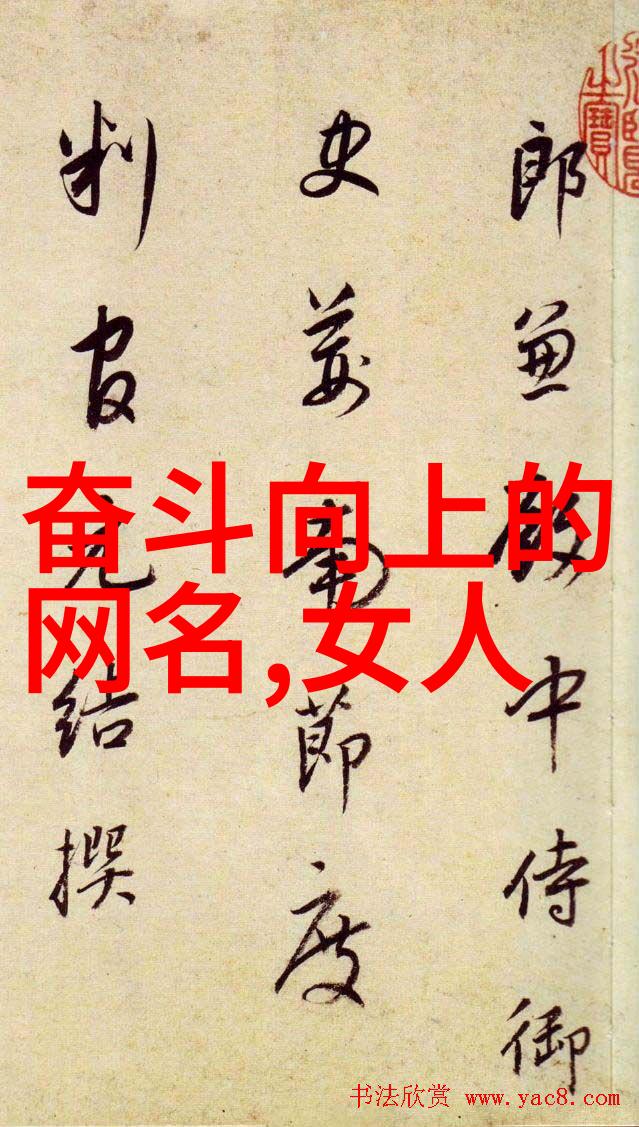 郎兼殿中侍御
史荊南節度
判官元結撰
奋斗向上的
网名,女人
书法欣赏 www.yac8.com